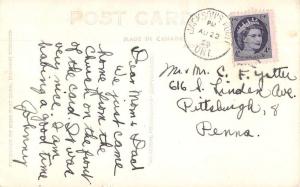 POST CARD
MADE IN CANADA
JACKSON'S POINT
PM
AU 22
ONT.
Dear Mom & Dad
We just came
home from the
Church on the front
of the card. It was
very nice. I am
having a good time
Johnny
Mr & Mr. C. F. Yetter
616 S. Linden Ave.
Pittsburgh, 8
Penna.